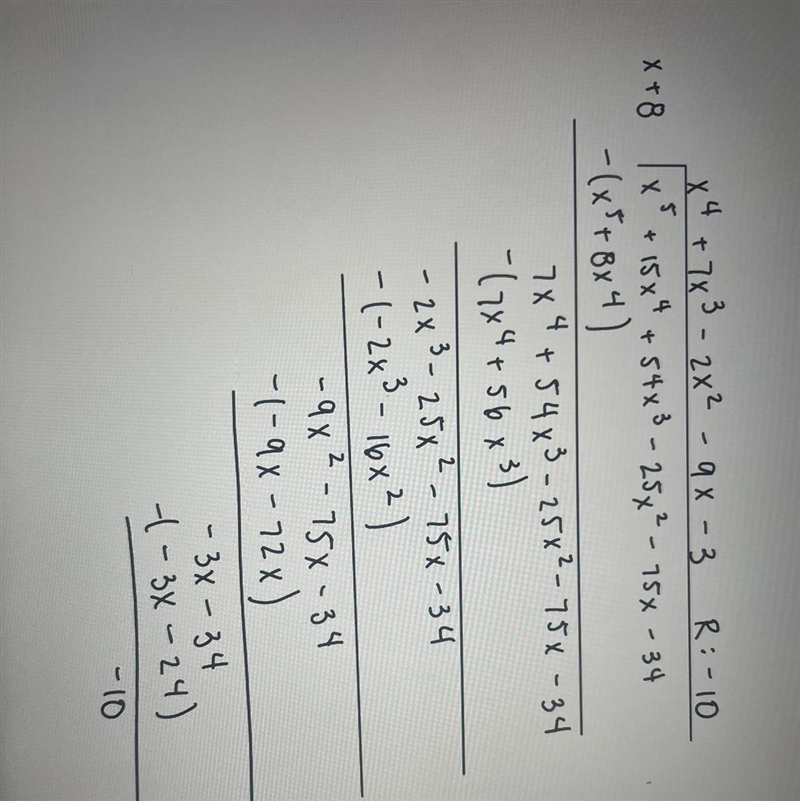 x⁴ + 7x³ - 2x² - 9x - 3 R: -10
x + 8 x⁵ + 15x⁴ + 54x³ - 25x² - 75x - 34
-(x⁵ + 8x⁴)
7x⁴ + 54x³ - 25x² - 75x - 34
-(7x⁴ + 56x³)
-2x³ - 25x² - 75x - 34
-(-2x³ - 16x²)
-9x² - 75x - 34
-(-9x - 72x)
-3x - 34
-(-3x - 24)
-10